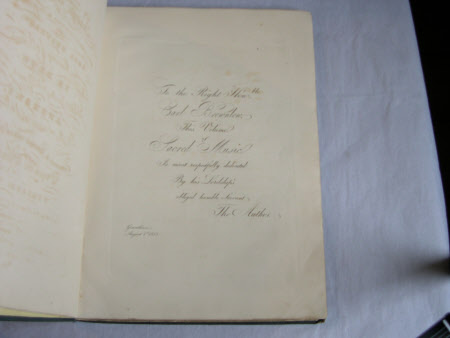 To the Right Hon.ble
Earl Brownlow
This Volume
Sacred Music
Is most respectfully dedicated
By his Lordship's
Obliged humble Servant
The Author
August 1st